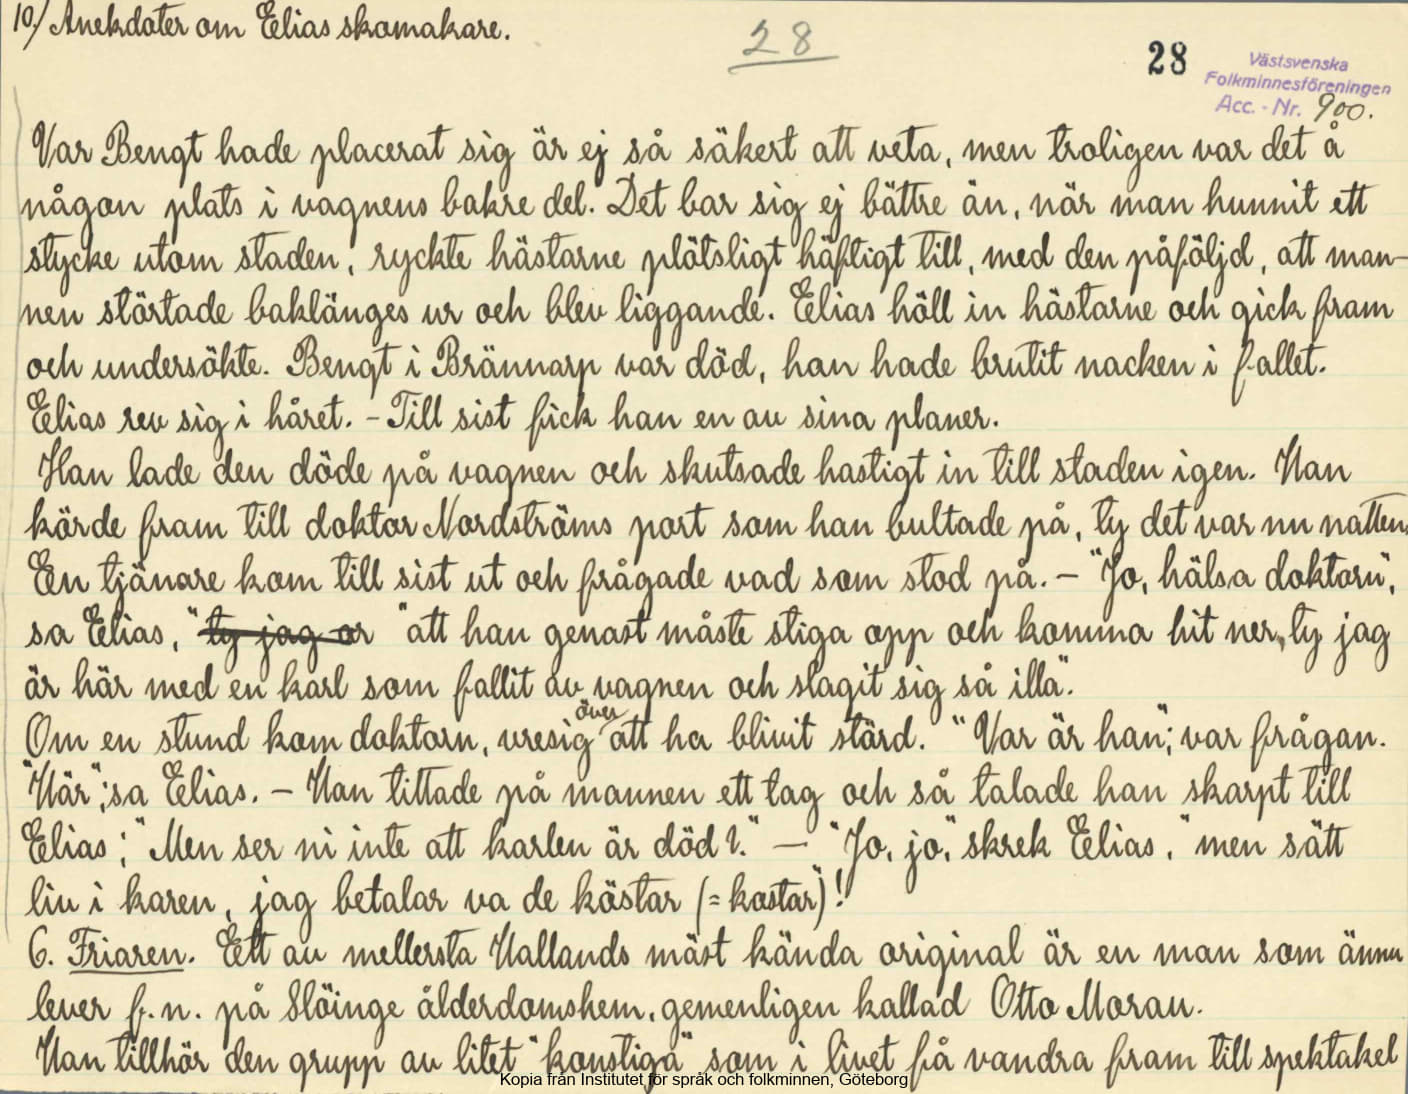 10/ Anekdoter om Eelias skomakare.
28
28
Västsvenska
Folkminnesföreningen
Acc. - Nr. 900.
Var Bengt hade placerat sig är ej så säkert att veta, men troligen var det å
någon plats i vagnens bakre del. Det bar sig ej bättre än, när man hunnit ett
stycke utom staden, ryckte hästarne plötsligt häftigt till, med den påföljd, att man-
nen störtade baklänges ur och blev liggande. Eelias höll in hästarne och gick fram
och undersökte. Bengt i Brännarp var död, han hade brutit nacken i fallet.
Eelias rev sig i håret. - Till sist fick han en av sina planer.
Han lade den döde på vagnen och skutsade hastigt in till staden igen. Han
körde fram till doktor Nordströms port som han bultade på, ty det var nu natten.
En tjänare kom till sist ut och frågade vad som stod på. - "Jo, hälsa doktorn",
sa Eelias, "ty jag är "att han genast måste stiga opp och komma hit ner, ty jag
är här med en karl som fallit av vagnen och slagit sig så illa".
Om en stund kom doktorn, vresig över att ha blivit störd. "Var är han", var frågan.
"Här", sa Eelias. - Han tittade på mannen ett tag och så talade han skarpt till
Eelias; "Men ser ni inte att karlen är död?." - "Jo, jo," skrek Eelias, "men sätt
liv i karen, jag betalar va de köstar (= kostar")!
6. Friaren. Ett av mellersta Hallands mäst kända original är en man som ännu
lever f.n. på Slöinge ålderdomshem, gemenligen kallad Otto Moran.
Han tillhör den grupp av litet "konstiga" som i livet få vandra fram till spektakel
Kopia från Institutet för språk och folkminnen, Göteborg